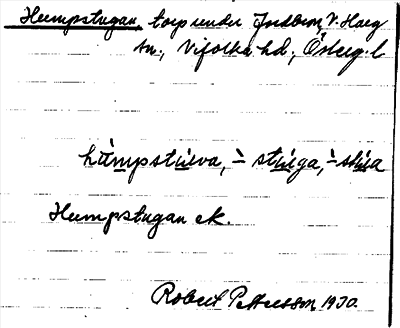 Humpstugan, torp under Jordbron, V. Harg
sn., Vifolka hd., Österg. l
hùmpstúeva, ⸌ stúega, ⸌ stúea
Humpstugan ek.
Robert Pettersson, 1930.